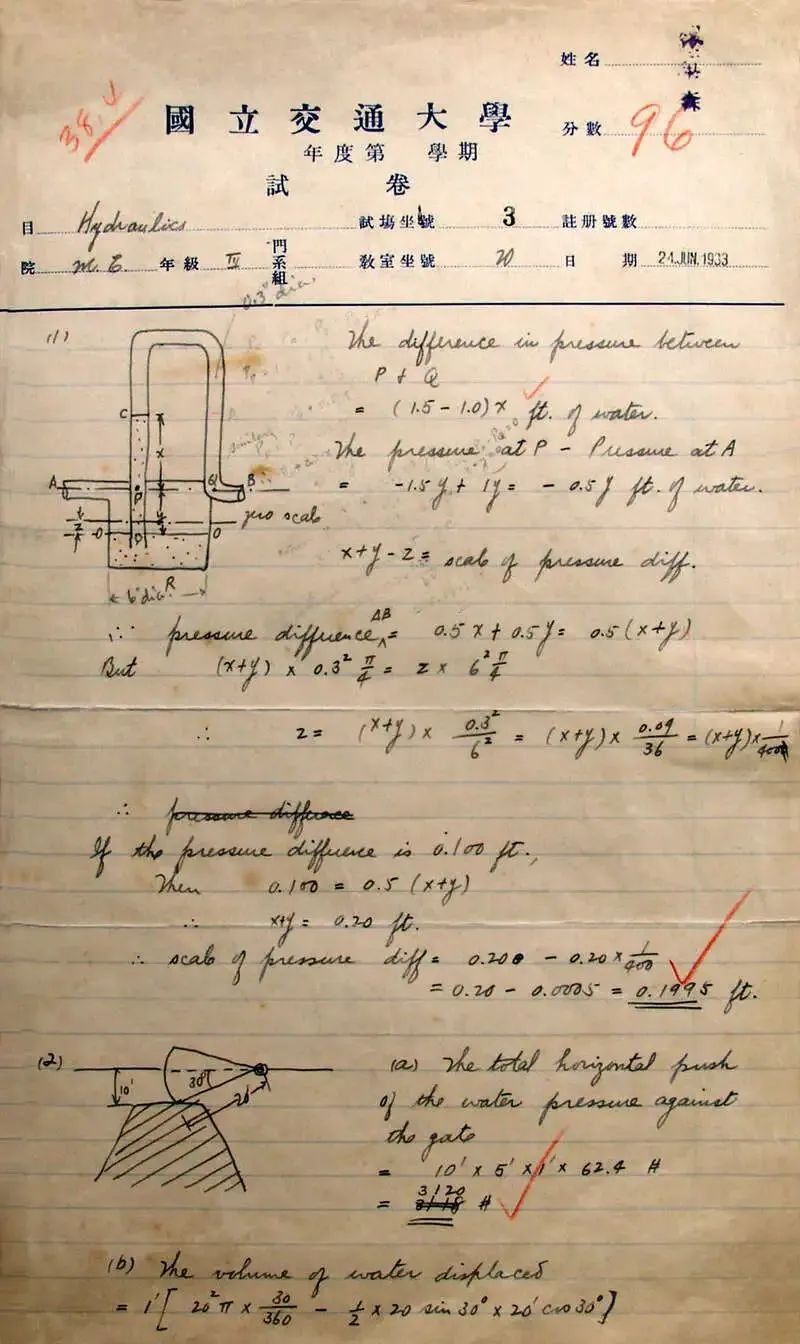 姓名
38.
國立交通大學
分數 96
年度第 學期
試 卷
目 Hydraulics 試場坐號 3 註册號數
院 M.E. 年級 IV 門系組 教室坐號 20 日 期 24 JUN. 1933
0.3" dia.
(1)
The difference in pressure between
P & Q
= (1.5 - 1.0) x ft. of water.
C
x
The pressure at P - Pressure at A
A P Q B
= -1.5y + 1y = -0.5y ft. of water.
zero scale
O D O
x+y-z = scale of pressure diff.
R
6" dia.
∴ pressure difference AB = 0.5x + 0.5y = 0.5(x+y)
But (x+y) x 0.3² π/4 = z x 6² π/4
∴ z = (x+y) x 0.3²/6² = (x+y) x 0.09/36 = (x+y) x 1/400
∴ pressure difference
If the pressure difference is 0.100 ft.,
Then 0.100 = 0.5 (x+y)
∴ x+y = 0.20 ft.
∴ scale of pressure diff = 0.200 - 0.20 x 1/400
= 0.20 - 0.0005 = 0.1995 ft.
(2)
(a) The total horizontal push
10' 30° 20'
of the water pressure against
the gate
= 10' x 5' x 1' x 62.4 #
= 3120 #
(b) The volume of water displaced
= 1' [ 20² π x 30/360 - 1/2 x 20 sin 30° x 20' cos 30° ]